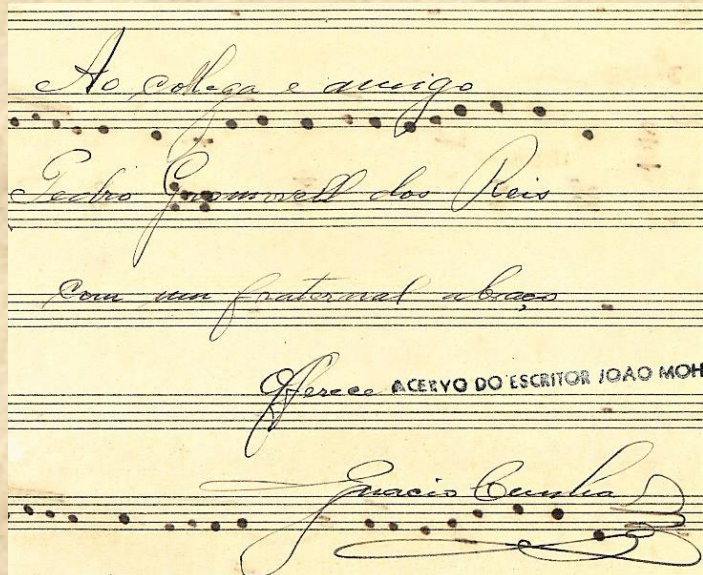 Ao collega e amigo
Pedro Gromwell dos Reis
com um fraternal abraço
Offerece
ACERVO DO ESCRITOR JOÃO MOH
Ignacio Cunha